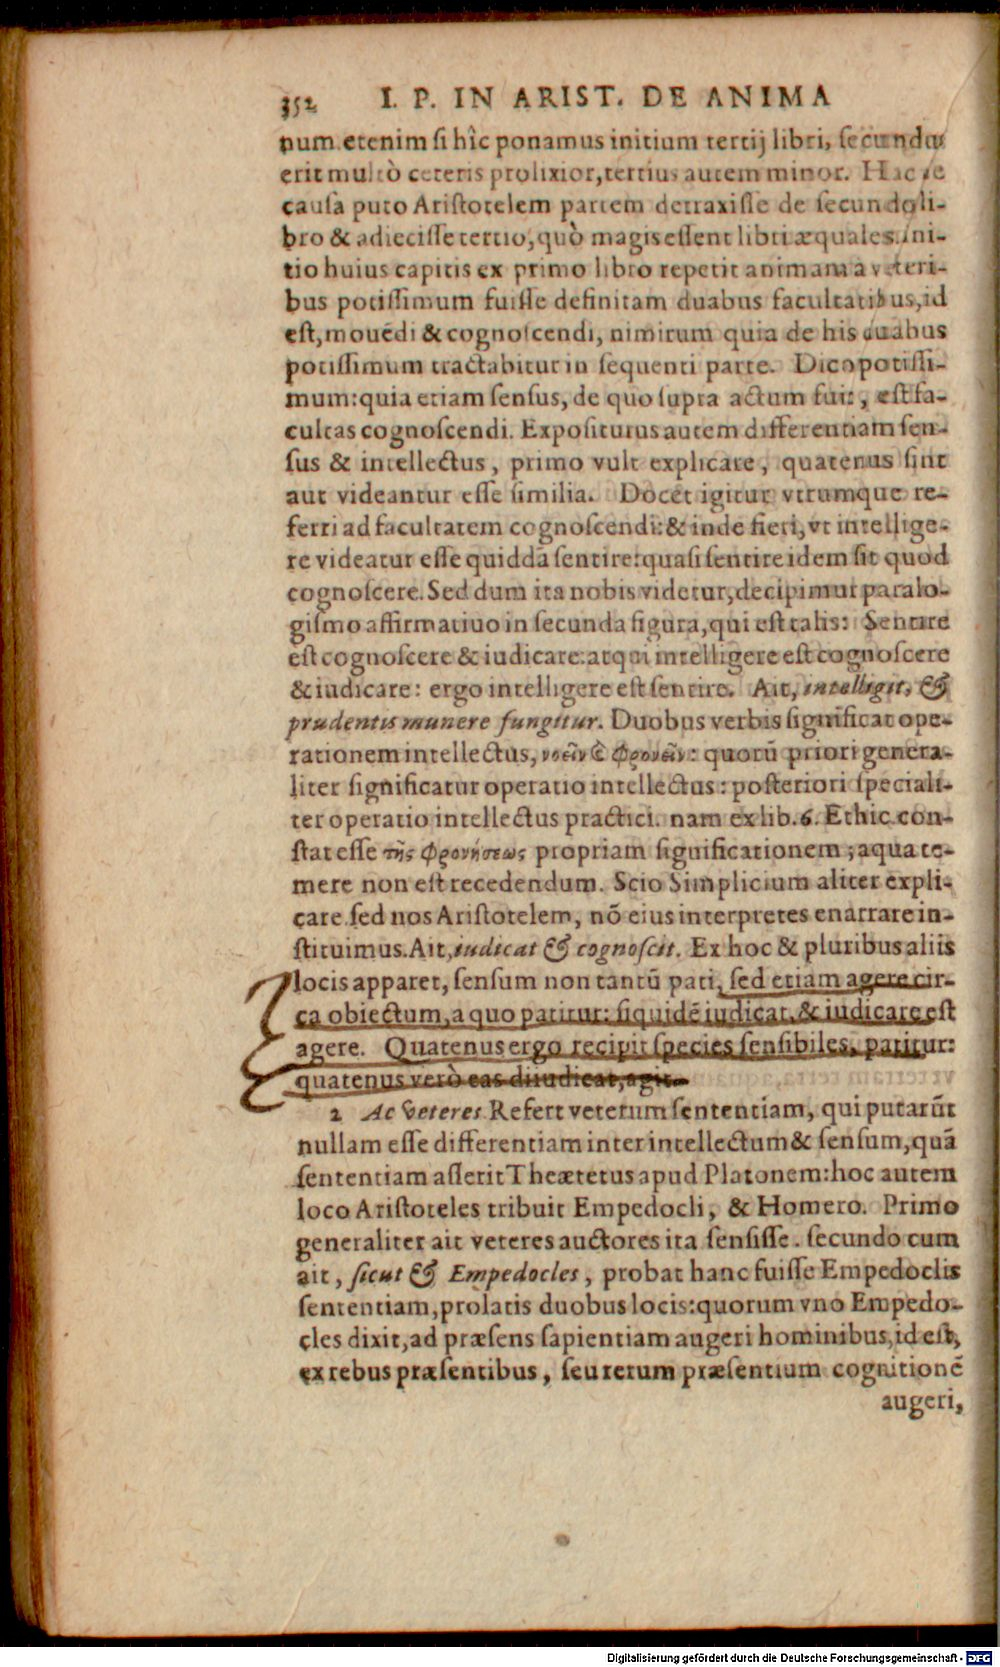 352 I. P. IN ARIST. DE ANIMA
num. etenim si hîc ponamus initium tertij libri, secundus
erit multò ceteris prolixior, tertius autem minor. Hac de
causa puto Aristotelem partem detraxisse de secundo li-
bro & adiecisse tertio, quò magis essent libri æquales. Ini-
tio huius capitis ex primo libro repetit animam a veteri-
bus potissimum fuisse definitam duabus facultatibus, id
est, mouēdi & cognoscendi, nimirum quia de his duabus
potissimum tractabitur in sequenti parte. Dico potissi-
mum: quia etiam sensus, de quo supra actum fuit, est fa-
cultas cognoscendi. Expositurus autem differentiam sen-
sus & intellectus, primo vult explicare, quatenus sint
aut videantur esse similia. Docet igitur vtrumque re-
ferri ad facultatem cognoscendi: & inde fieri, vt intellige-
re videatur esse quiddā sentire: quasi sentire idem sit quod
cognoscere. Sed dum ita nobis videtur, decipimur paralo-
gismo affirmatiuo in secunda figura, qui est talis: Sentire
est cognoscere & iudicare: atqui intelligere est cognoscere
& iudicare: ergo intelligere est sentire. Ait, intelligit, &
prudentis munere fungitur. Duobus verbis significat ope-
rationem intellectus, νοεῖν & φρονεῖν: quorū priori genera-
liter significatur operatio intellectus: posteriori speciali-
ter operatio intellectus practici. nam ex lib. 6. Ethic. con-
stat esse τῆς φρονήσεως propriam significationem; a qua te-
mere non est recedendum. Scio Simplicium aliter expli-
care. sed nos Aristotelem, nō eius interpretes enarrare in-
stituimus. Ait, iudicat & cognoscit. Ex hoc & pluribus aliis
locis apparet, sensum non tantū pati, sed etiam agere cir-
ca obiectum, a quo patitur: siquidē iudicat, & iudicare est
agere. Quatenus ergo recipit species sensibiles, patitur:
quatenus verò eas diiudicat, agit.
2 Ac veteres Refert veterum sententiam, qui putarūt
nullam esse differentiam inter intellectum & sensum, quā
sententiam asserit Theætetus apud Platonem: hoc autem
loco Aristoteles tribuit Empedocli, & Homero. Primo
generaliter ait veteres auctores ita sensisse. secundo cum
ait, sicut & Empedocles, probat hanc fuisse Empedoclis
sententiam, prolatis duobus locis: quorum vno Empedo-
cles dixit, ad præsens sapientiam augeri hominibus, id est,
ex rebus præsentibus, seu rerum præsentium cognitionē
augeri,
Digitalisierung gefördert durch die Deutsche Forschungsgemeinschaft - DFG